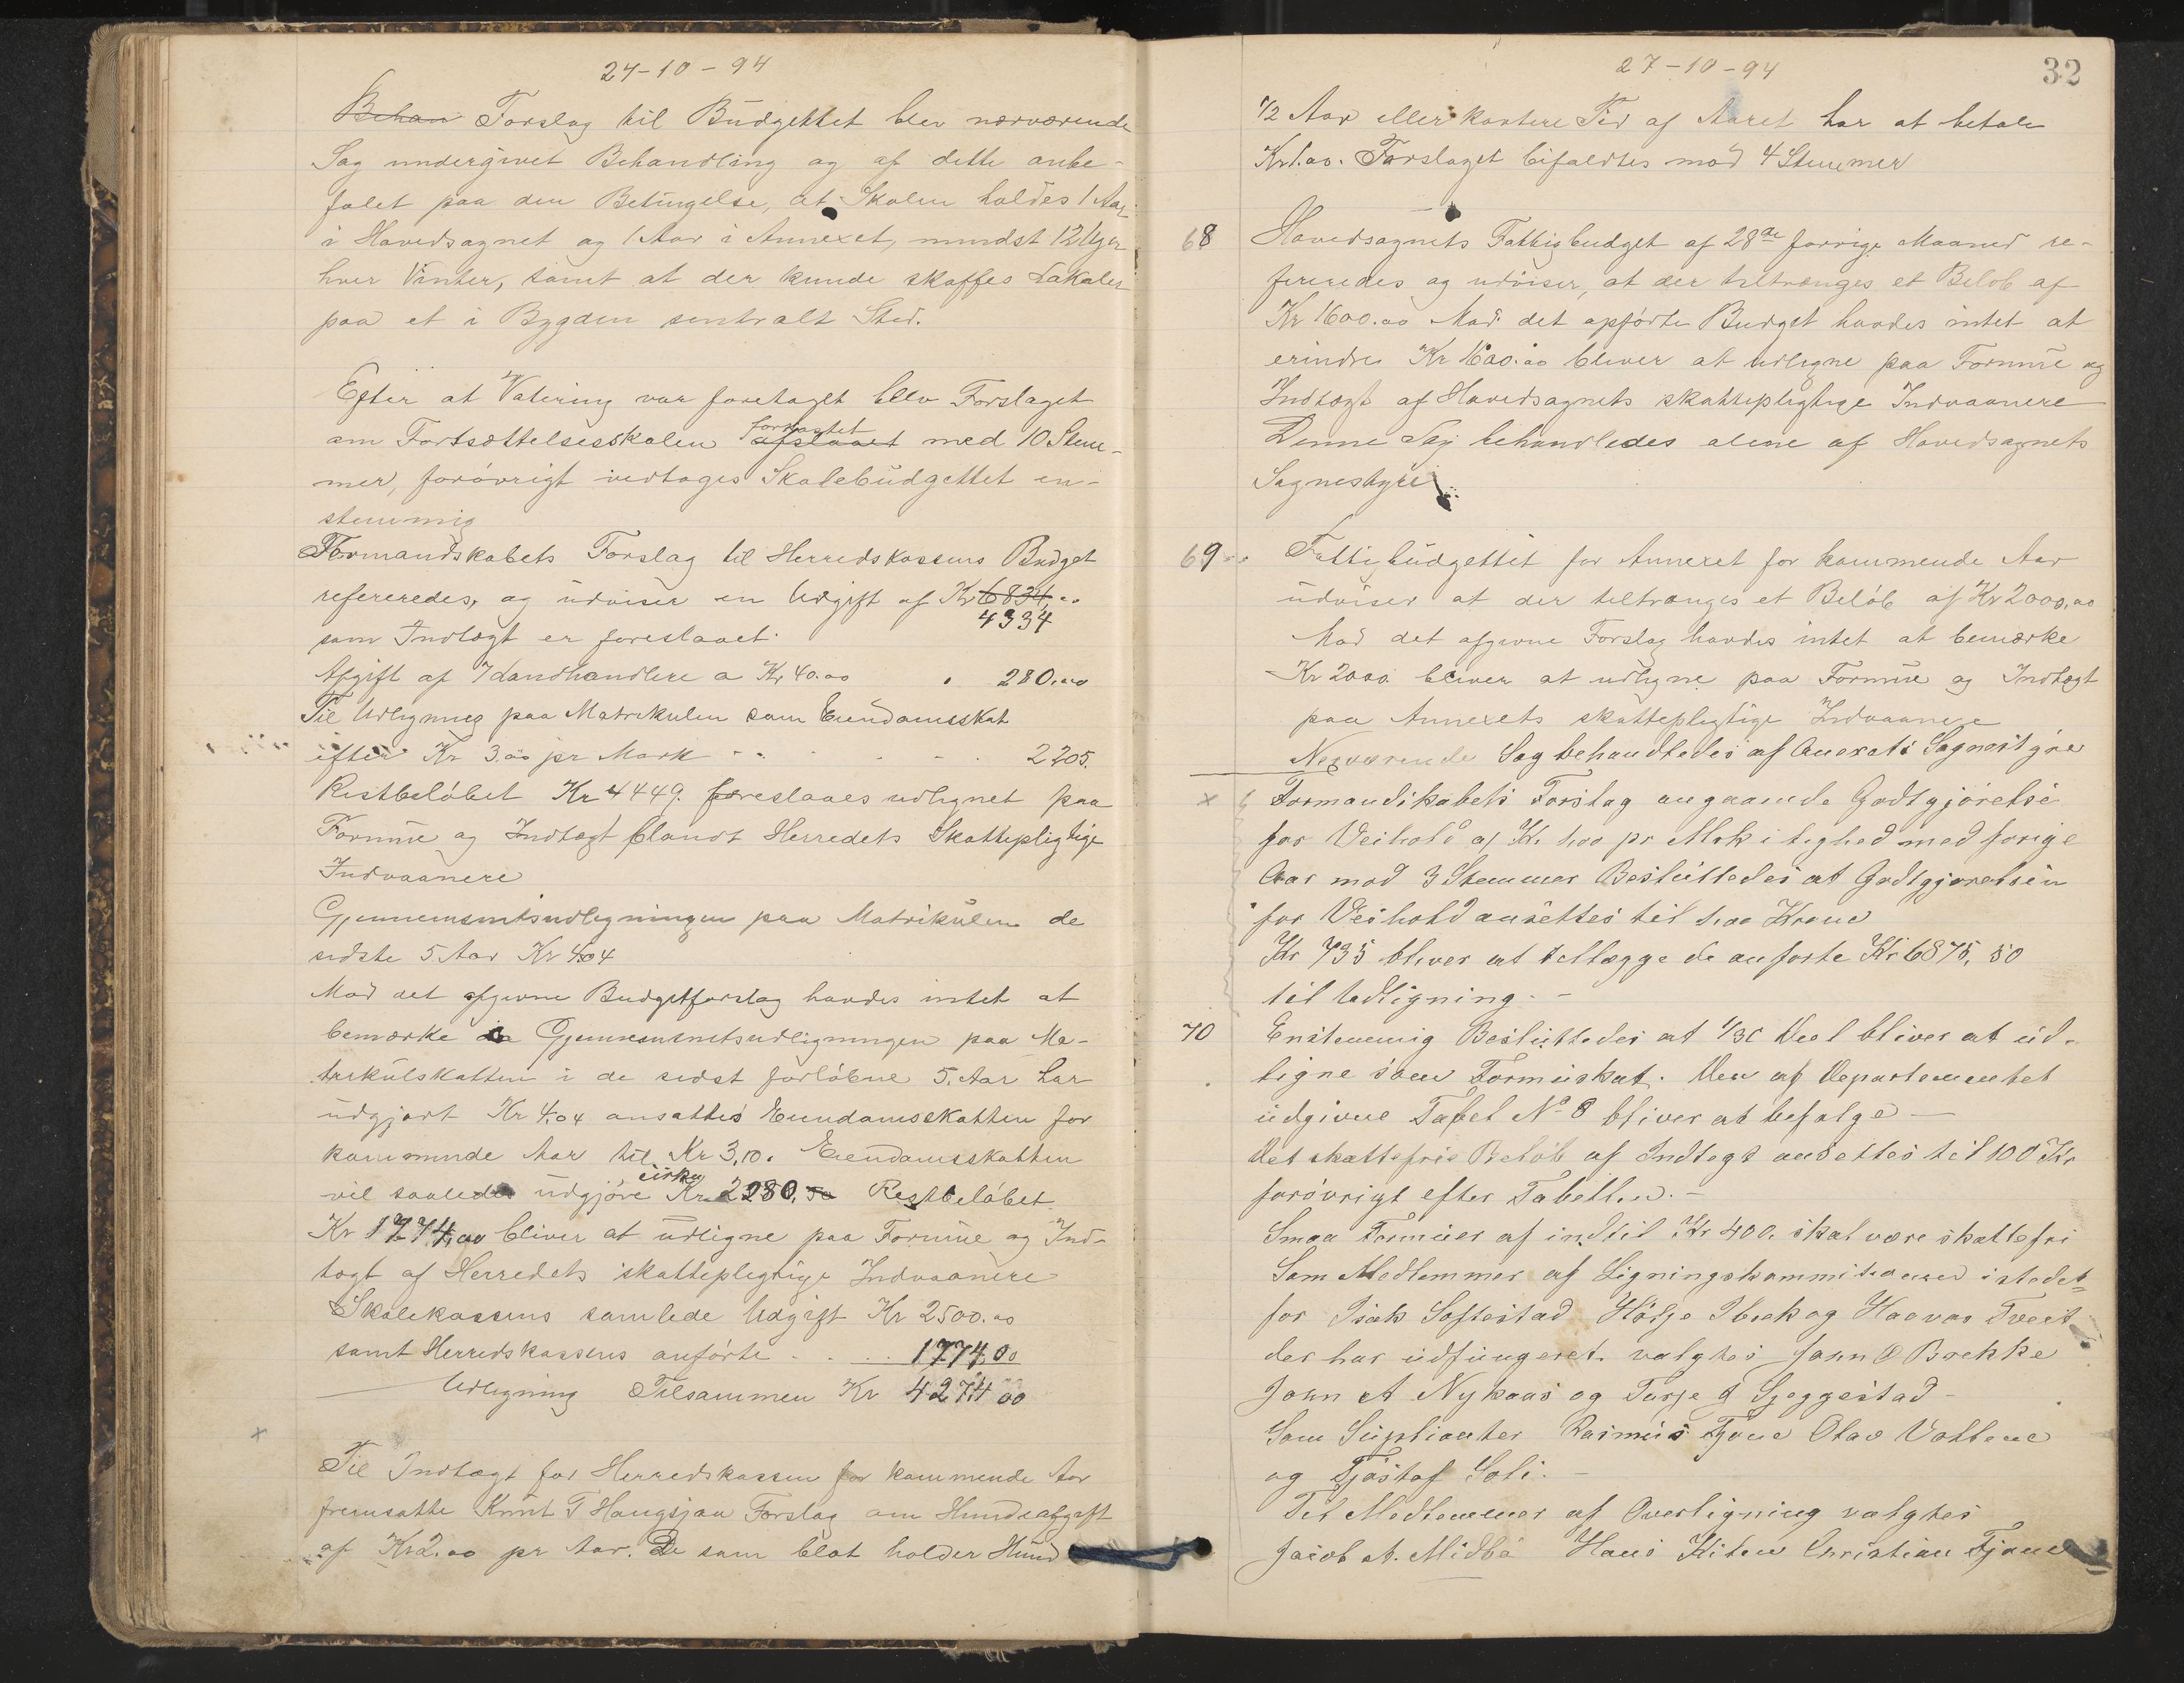 24-10-94
Behan Forslag til Büdgettet blev nærværende
Sag undergivet Behandling og af dette anbe-
falet paa den Betingelse, at Skolen holdes 1 Aar
i Hovedsognet og 1 Aar i Annexet, mindst 12 Uger
hver Vinter, samt at der kunde skaffes Lokaler
paa et i Bygden sentralt Sted.
Efter at Votering var foretaget blev Forslaget
om Fortsættelsesskolen afslaaet forkastet med 10 Stem-
mer, forøvrigt vedtoges Skolebüdgettet en-
stemmig
Formandskabets Forslag til Herredskassens Budget
refereredes, og üdviser en Udgift af Kr 6834,00
4334
som Indtægt er foreslaaet.
Afgift af 7 Landhandlere a Kr 40.00 280.00
Til Udligning paa Matrikulen som Eiendomsskat
efter Kr 3.00 pr Mark 2205.
Restbeløbet Kr 4449. foreslaaes udlignet paa
Formüe og Indtægt blandt Herredets Skattepligtige
Indvaanere
Gjennemsnitsudligningen paa Matrikülen de
sidste 5 Aar Kr 4.04
Mod det afgivne Budgetforslag havdes intet at
bemærke da Gjennemsnitsudligningen paa Ma-
trikülskatten i de sidst forløbne 5. Aar har
üdgjort Kr 4,04 ansattes Eiendomsskatten for
kommende Aar til Kr 3,10. Eiendomsskatten
vil saaledes üdgjøre cirka Kr 2280,50 Restbeløbet
Kr 1774,00 bliver at üdligne paa Formüe og Ind-
tægt af Herredets skattepligtige Indvaanere
Skolekassens samlede Udgift Kr 2500.00
samt Herredskassens anførte 1774,00
Udligning Tilsammen Kr 4274 00
×
Til Indtægt for Herredskassen for kommende Aar
fremsatte Knut T Haugsjaa Forslag om Hundeafgift
af Kr 2.00 pr Aar. De som blot holder Hünd
27-10-94
32
1/2 Aar eller kortere Tid af Aaret har at betale
Kr 1.00. Forslaget bifaldtes mod 4 Stemmer
68 Hovedsognets Fattigbudget af 28de forrige Maaned re-
fereredes og udviser, at der tiltrænges et Beløb af
Kr 1600.00 Mod det opførte Budget havdes intet at
erindre Kr 1600.00 bliver at udligne paa Formüe og
Indtægt af Hovedsognets skattepligtige Indvaanere
Denne Sag behandledes alene af Hovedsognets
Sognestyre
69 Fattigbüdgettet for Annexet for kommende Aar
üdviser at der tiltrænges et Beløb af Kr 2000,00
Mod det afgivne Forslag havdes intet at bemærke
Kr 2000. bliver at udligne paa Formüe og Indtægt
paa Annexets skattepligtige Indvaanere
Nerværende Sag behandledes af Anexets Sognestyre
× Formandskabets Forslag angaaende Godtgjørelse
for Veihold af Kr 1,00 pr Mrk i lighed med forige
Aar mod 3 Stemmer Beslüttedes at Godtgjørelsen
for Veihold ansættes til 1,00 Krone
Kr 735 bliver at tillægge de anførte Kr 6875,50
til Udligning.-
70 Enstemmig Beslüttedes at 1/30 Deel bliver at üd-
ligne som Formüskat. Den af Departementet
üdgivne Tabel No 8 bliver at befolge
Det skattefrie Beløb af Indtegt ansettes til 100 Kr
forøvrigt efter Tabellen.-
Smaa Formüer af indtil Kr 400. skal være skattefri
Som Medlemmer af Ligningskommitionen istedet
for Isak Softestad Hølje Ibrek og Haavar Tveit
der har üdfüngeret. valgtes John O Brekke
John A Nykaas og Turje G Sjeggestad-
Som Süplianter Rasmüs Fjone Olav Vottene
og Tjøstaf Soli.-
Til Medlemmer af Overligning valgtes
Jacob A. Midbø Hans Kiten Christian Fjone